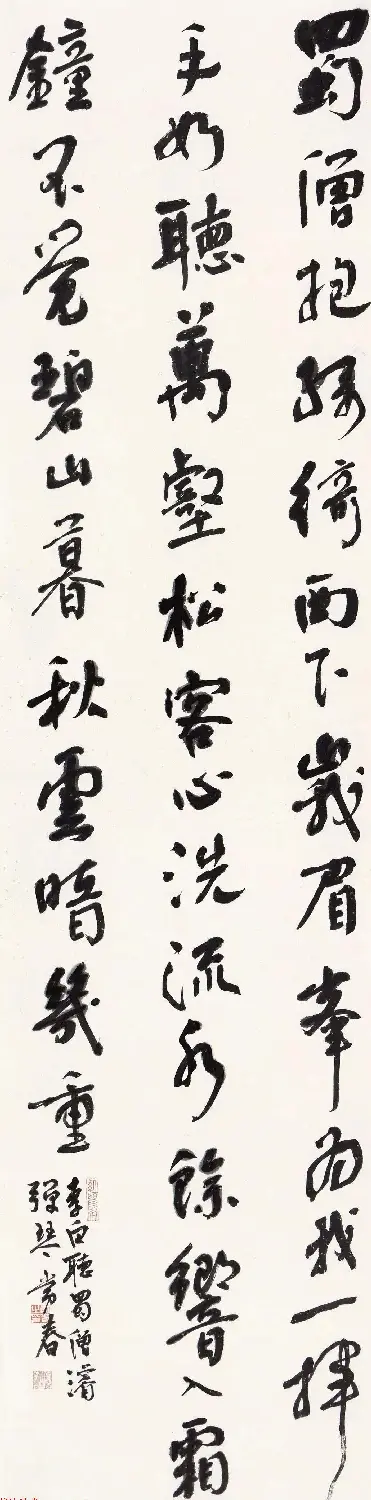 蜀僧抱綠綺西下峩眉峯為我一揮
手如聽萬壑松客心洗流水餘響入霜
鐘不覺碧山暮秋雲暗幾重
李白聽蜀僧濬
彈琴常春